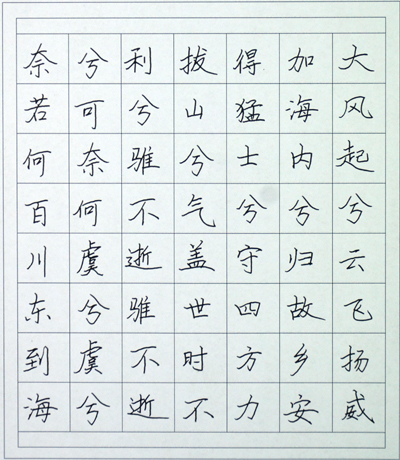 大风起兮云飞扬威
加海内兮归故乡安
得猛士兮守四方力
拔山兮气盖世时不
利兮骓不逝骓不逝
兮可奈何虞兮虞兮
奈若何百川东到海